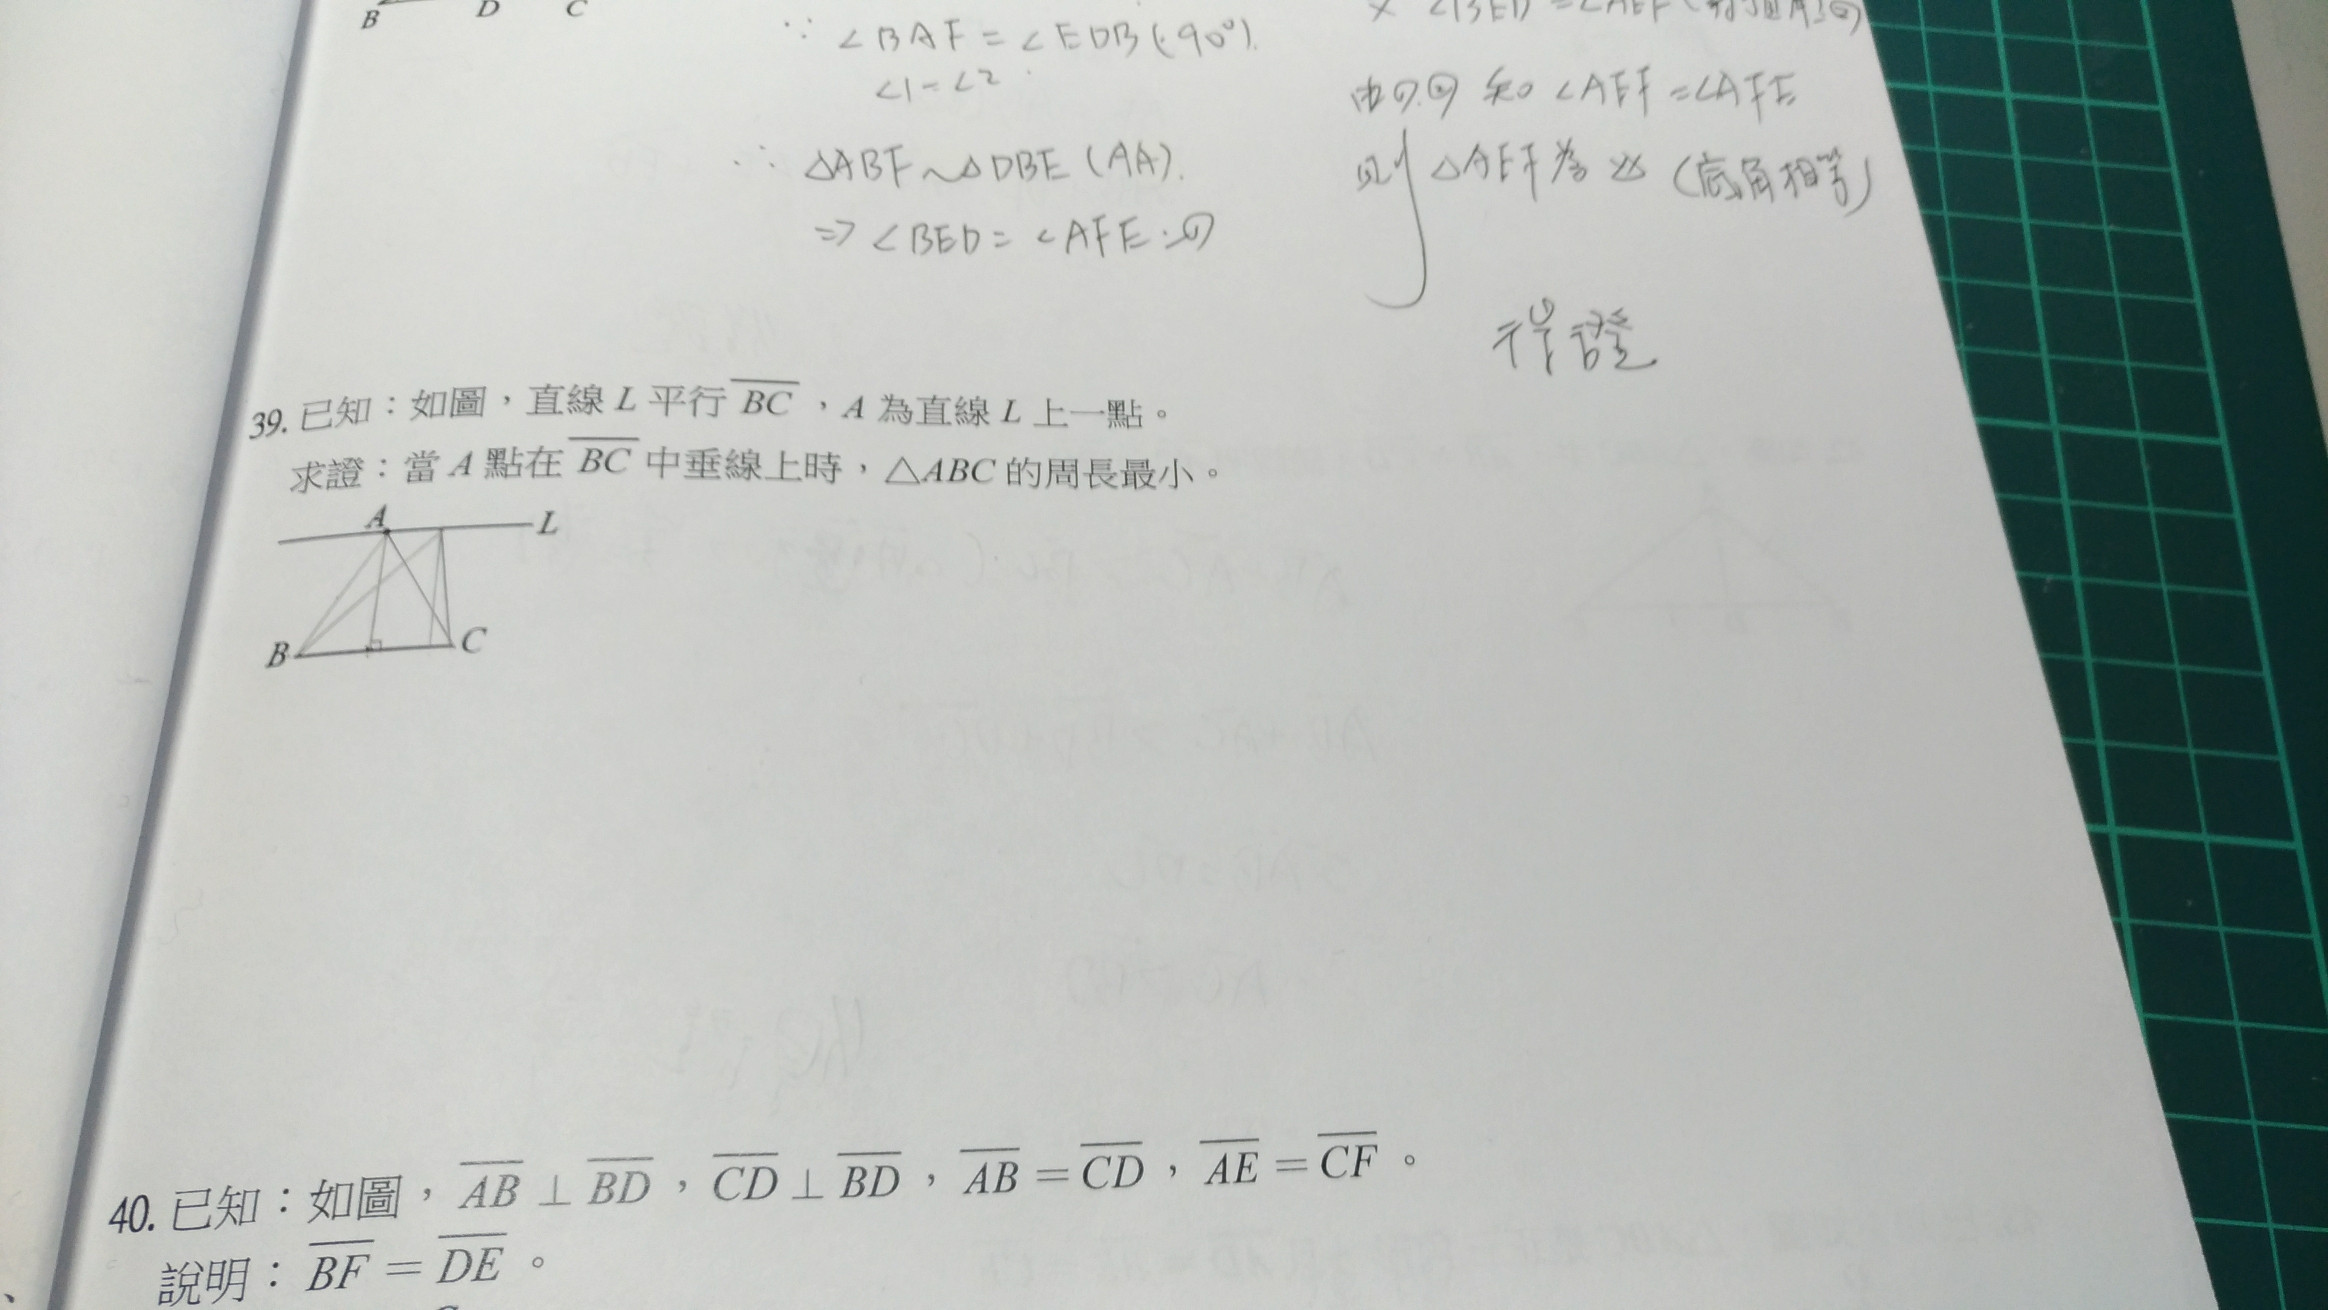 B D C
∵ ∠BAF = ∠EDB (90°).
∠1 = ∠2
∴ △ABF ~ △DBE (AA).
⇒ ∠BED = ∠AFE
∠BED = ∠AEF (對頂角)
知 ∠AEF = ∠AFE
則 △AEF 為 (底角相等)
得證
39. 已知：如圖，直線 L 平行 BC，A 為直線 L 上一點。
求證：當 A 點在 BC 中垂線上時，△ABC 的周長最小。
A L
B C
40. 已知：如圖，AB⊥BD，CD⊥BD，AB＝CD，AE＝CF。
說明：BF＝DE。